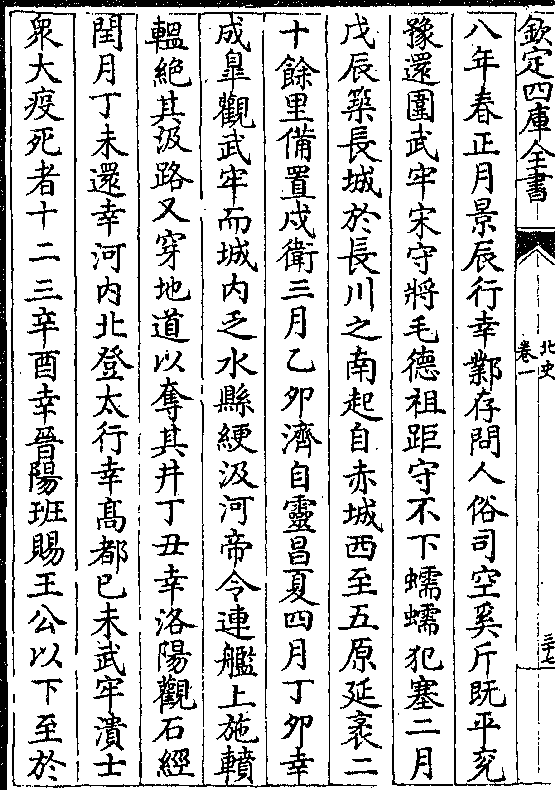 欽定四庫全書
北史
卷一
三十七
八年春正月景辰行幸鄴存問人俗司空奚斤既平兖
豫還圍武牢宋守將毛德祖距守不下蠕蠕犯塞二月
戊辰築長城於長川之南起自赤城西至五原延袤二
十餘里備置戍衛三月乙卯濟自靈昌夏四月丁卯幸
成臯觀武牢而城內乏水縣綆汲河帝令連艦上施轒
轀絕其汲路又穿地道以奪其井丁丑幸洛陽觀石經
閏月丁未還幸河內北登太行幸髙都已未武牢潰士
衆大疫死者十二三辛酉幸晉陽班賜王公以下至於